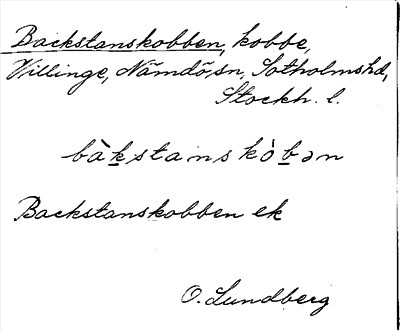 Backstanskobben, kobbe,
Villinge, Nämdö, sn, Sotholms hd,
Stockh. l.
bàkstanskòbən
Backstanskobben ek
O. Lundberg